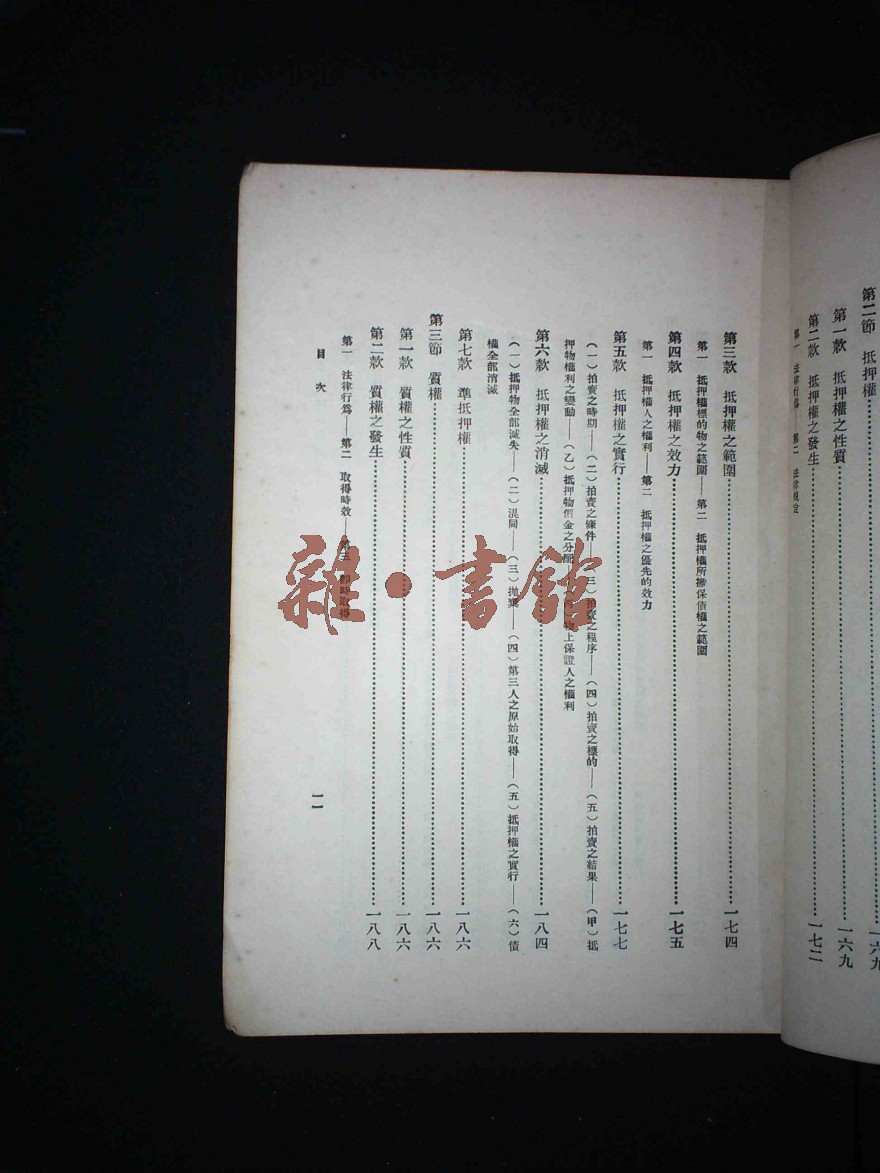 第二節 抵押權……一六九
第一款 抵押權之性質……一六九
第二款 抵押權之發生……一七二
第一 法律行爲——第二 法律規定
第三款 抵押權之範圍……一七四
第一 抵押權標的物之範圍——第二 抵押權所擔保債權之範圍
第四款 抵押權之效力……一七五
第一 抵押權人之權利——第二 抵押權之優先的效力
第五款 抵押權之實行……一七七
（一）拍賣之時期——（二）拍賣之條件——（三）拍賣之程序——（四）拍賣之標的——（五）拍賣之結果——（甲）抵
押物權利之變動——（乙）抵押物價金之分配——（丙）物上保證人之權利
第六款 抵押權之消滅……一八四
（一）抵押物全部滅失——（二）混同——（三）拋棄——（四）第三人之原始取得——（五）抵押權之實行——（六）債
權全部消滅
第七款 準抵押權……一八六
第三節 質權……一八六
第一款 質權之性質……一八六
第二款 質權之發生……一八八
第一 法律行爲——第二 取得時效——第三 即時取得
目次
一一
雜·書館